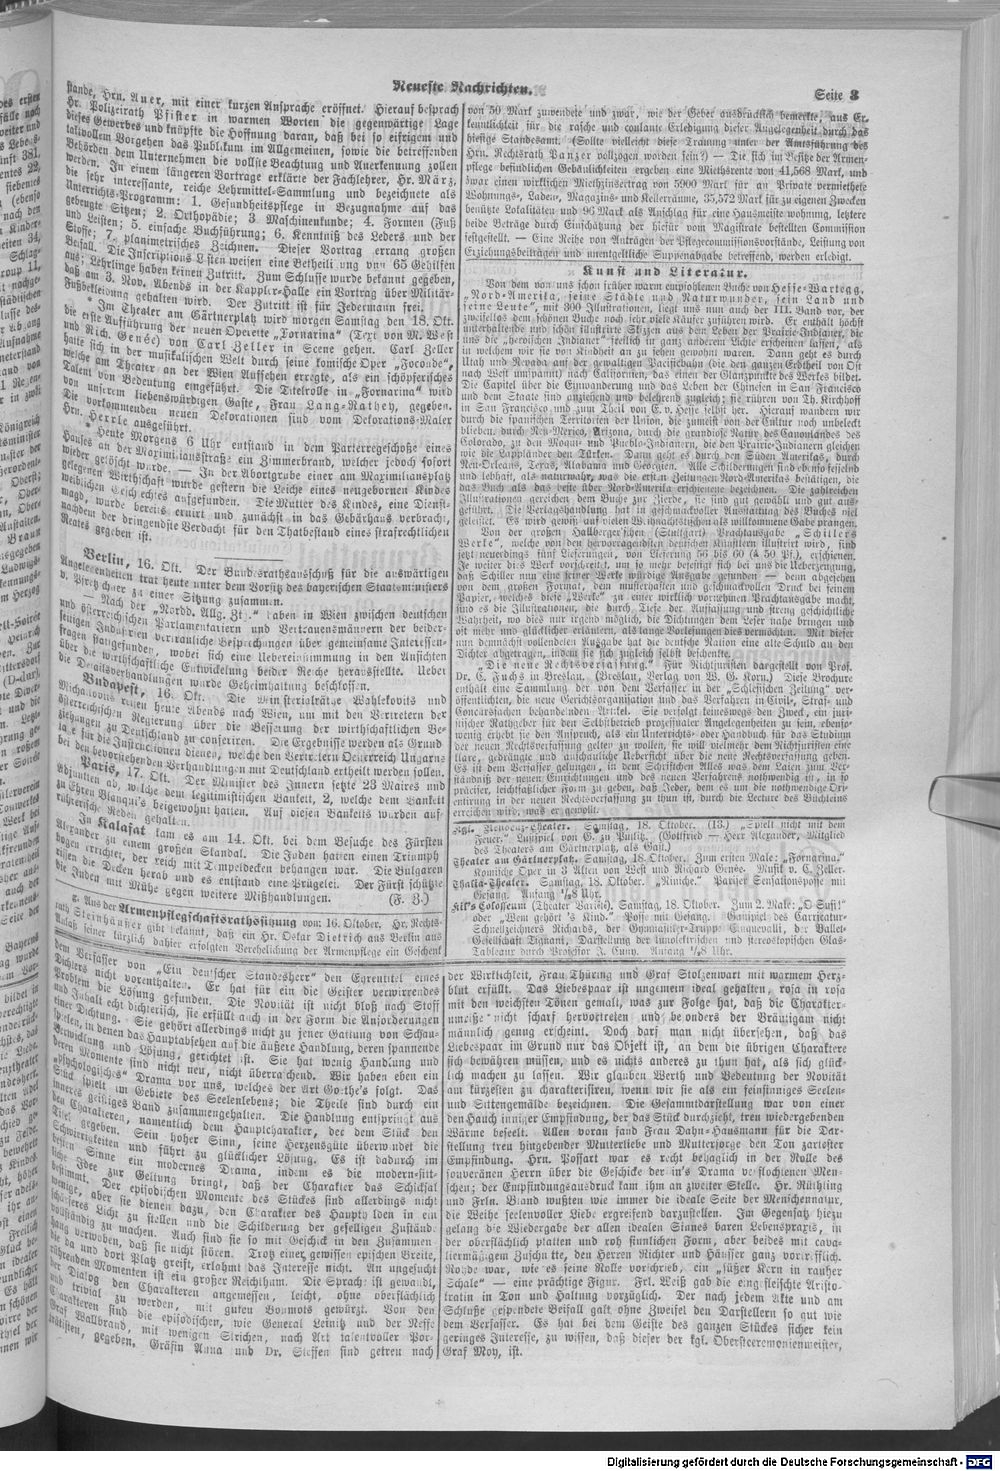 Neueste Nachrichten.
Seite 3
stande, Hrn. Auer, mit einer kurzen Ansprache eröffnet. Hierauf besprach
Hr. Polizeirath Pfister in warmen Worten die gegenwärtige Lage
dieses Gewerbes und knüpfte die Hoffnung daran, daß bei so eifrigem und
taktvollem Vorgehen das Publikum im Allgemeinen, sowie die betreffenden
Behörden dem Unternehmen die vollste Beachtung und Anerkennung zollen
werden. In einem längeren Vortrage erklärte der Fachlehrer, Hr. März,
die sehr interessante, reiche Lehrmittel-Sammlung und bezeichnete als
Unterrichts-Programm: 1. Gesundheitspflege in Bezugnahme auf das
gebeugte Sitzen; 2. Orthopädie; 3 Maschinenkunde; 4. Formen (Fuß
und Leisten); 5. einfache Buchführung; 6. Kenntniß des Leders und der
Stoffe; 7. planimetrisches Zeichnen. — Dieser Vortrag errang großen
Beifall. Die Inscriptions Listen weisen eine Betheiligung von 65 Gehilfen
aus; Lehrlinge haben keinen Zutritt. Zum Schlusse wurde bekannt gegeben,
daß am 3. Nov. Abends in der Kappler-Halle ein Vortrag über Militär-
Fußbekleidung gehalten wird. Der Zutritt ist für Jedermann frei.
* Im Theater am Gärtnerplatz wird morgen Samstag den 18. Okt.
die erste Aufführung der neuen Operette „Fornarina" (Text von M. West
und Rich. Genée) von Carl Zeller in Scene gehen. Carl Zeller
hatte sich in der musikalischen Welt durch seine komische Oper „Joconde",
welche am Theater an der Wien Aufsehen erregte, als ein schöpferisches
Talent von Bedeutung eingeführt. Die Titelrolle in „Fornarina" wird
von unserem liebenswürdigen Gaste, Frau Lang-Rathey, gegeben.
Die vorkommenden neuen Dekorationen sind vom Dekorations-Maler
Hrn. Herrle ausgeführt.
* Heute Morgens 6 Uhr entstand in dem Parterregeschoße eines
Hauses an der Maximiliansstraße ein Zimmerbrand, welcher jedoch sofort
wieder gelöscht wurde. — In der Abortgrube einer am Maximiliansplatz
gelegenen Wirthschaft wurde gestern die Leiche eines neugebornen Kindes
weiblichen Geschlechtes aufgefunden. Die Mutter des Kindes, eine Dienst-
magd, wurde bereits eruirt und zunächst in das Gebärhaus verbracht,
nachdem der dringendste Verdacht für den Thatbestand eines strafrechtlichen
Reates gegeben ist.
Berlin, 16. Okt. Der Bundesrathsausschuß für die auswärtigen
Angelegenheiten trat heute unter dem Vorsitz des bayerischen Staatsministers
v. Pfretzschner zu einer Sitzung zusammen.
— Nach der „Nordd. Allg. Zt." haben in Wien zwischen deutschen
und österreichischen Parlamentariern und Vertrauensmännern der beider-
seitigen Industrien vertrauliche Besprechungen über gemeinsame Interessen-
fragen stattgefunden, wobei sich eine Uebereinstimmung in den Ansichten
über die wirthschaftliche Entwickelung beider Reiche herausstellte. Ueber
die Detailsverhandlungen wurde Geheimhaltung beschlossen.
Budapest, 16. Okt. Die Ministerialräthe Wahlekovits und
Michalovits reisen heute Abends nach Wien, um mit den Vertretern der
österreichischen Regierung über die Besserung der wirthschaftlichen Be-
ziehungen zu Deutschland zu conferiren. Die Ergebnisse werden als Grund
lage für die Instructionen dienen, welche den Vertretern Oesterreich Ungarns
bei den bevorstehenden Verhandlungen mit Deutschland ertheilt werden sollen.
Paris, 17. Okt. Der Minister des Innern setzte 23 Maires und
Adjunkten ab, welche dem legitimistischen Bankett, 2, welche dem Bankett
zu Ehren Blanqui's beigewohnt hatten. Auf diesen Banketts wurden auf-
rührerische Reden gehalten.
In Kalafat kam es am 14. Okt. bei dem Besuche des Fürsten
Alexander zu einem großen Skandal. Die Juden hatten einen Triumph
bogen errichtet, der reich mit Tempeldecken behangen war. Die Bulgaren
rissen die Decken herab und es entstand eine Prügelei. Der Fürst schützte
die Juden mit Mühe gegen weitere Mißhandlungen. (F. Z.)
z. Aus der Armenpflegschaftsrathssitzung vom 16. Oktober. Hr. Rechts-
rath Steinhäußer gibt bekannt, daß ein Hr. Oskar Dietrich aus Berlin aus
Anlaß seiner kürzlich dahier erfolgten Verehelichung der Armenpflege ein Geschenk
von 50 Mark zuwendete und zwar, wie der Geber ausdrücklich bemerkte, aus Er-
kenntlichkeit für die rasche und coulante Erledigung dieser Angelegenheit durch das
hiesige Standesamt. (Sollte vielleicht diese Trauung unter der Amtsführung des
Hrn. Rechtsrath Panzer vollzogen worden sein?) — Die sich im Besitze der Armen-
pflege befindlichen Gebäulichkeiten ergeben eine Miethsrente von 41,568 Mark, und
zwar einen wirklichen Miethzinsertrag von 5900 Mark für an Private vermiethete
Wohnungs-, Laden-, Magazins- und Kellerräume, 35,572 Mark für zu eigenen Zwecken
benützte Lokalitäten und 96 Mark als Anschlag für eine Hausmeisterwohnung, letztere
beide Beträge durch Einschätzung der hiefür vom Magistrate bestellten Commission
festgestellt. — Eine Reihe von Anträgen der Pflegecommissionsvorstände, Leistung von
Erziehungsbeiträgen und unentgeltliche Suppenabgabe betreffend, werden erledigt.
Kunst und Literatur.
Von dem von uns schon früher warm empfohlenen Buche von Hesse-Wartegg,
„Nord-Amerika, seine Städte und Naturwunder, sein Land und
seine Leute", mit 300 Illustrationen, liegt uns nun auch der III. Band vor, der
zweifellos dem schönen Buche noch sehr viele Käufer zuführen wird. Er enthält höchst
unterhaltende und schön illustrirte Skizzen aus dem Leben der Prairie-Indianer, die
uns die „heroischen Indianer" freilich in ganz anderem Lichte erscheinen lassen, als
in welchem wir sie von Kindheit an zu sehen gewohnt waren. Dann geht es durch
Utah und Nevada auf der gewaltigen Pacifikbahn (die den ganzen Erdtheil von Ost
nach West umspannt) nach Californien, das einen der Glanzpunkte des Werkes bildet.
Die Capitel über die Einwanderung und das Leben der Chinesen in San Francisco
und dem Staate sind anziehend und belehrend zugleich; sie rühren von Th. Kirchhoff
in San Francisco und zum Theil von E. v. Hesse selbst her. Hierauf wandern wir
durch die spanischen Territorien der Union, die zumeist von der Cultur noch unbeleckt
blieben, durch Neu-Mexico, Arizona, durch die grandiose Natur des Canonlandes des
Colorado, zu den Moqui- und Pueblo-Indianern, die den Prairie-Indianern gleichen
wie die Lappländer den Türken. Dann geht es durch den Süden Amerikas, durch
Neu-Orleans, Texas, Alabama und Georgien. Alle Schilderungen sind ebenso fesselnd
und lebhaft, als naturwahr, was die ersten Zeitungen Nord-Amerikas bestätigen, die
das Buch als das beste über Nord-Amerika erschienene bezeichnen. Die zahlreichen
Illustrationen gereichen dem Buche zur Zierde, sie sind gut gewählt und gut aus-
geführt. Die Verlagshandlung hat in geschmackvoller Ausstattung des Buches viel
geleistet. Es wird gewiß auf vielen Weihnachtstischen als willkommene Gabe prangen.
Von der großen Hallberger'schen (Stuttgart) Prachtausgabe „Schillers
Werke", welche von den hervorragendsten deutschen Künstlern illustrirt wird, sind
jetzt neuerdings fünf Lieferungen, von Lieferung 56 bis 60 (à 50 Pf.), erschienen.
Je weiter dies Werk vorschreitet, um so mehr befestigt sich bei uns die Ueberzeugung,
daß Schiller nun eine seiner Werke würdige Ausgabe gefunden — denn abgesehen
von dem großen Format, dem musterhaften und geschmackvollen Druck bei feinem
Papier, welches diese „Werke" zu einer wirklich vornehmen Prachtausgabe macht,
sind es die Illustrationen, die durch Tiefe der Auffassung und streng geschichtliche
Wahrheit, wo dies nur irgend möglich, die Dichtungen dem Leser nahe bringen und
oft mehr und glücklicher erläutern, als lange Vorlesungen dies vermöchten. Mit dieser
nun demnächst vollendeten Ausgabe hat die deutsche Nation eine alte Schuld an den
Dichter abgetragen, indem sie sich zugleich selbst beschenkte.
„Die neue Rechtsverfassung." Für Nichtjuristen dargestellt von Prof.
Dr. C. Fuchs in Breslau. (Breslau, Verlag von W. G. Korn.) Diese Brochure
enthält eine Sammlung der von dem Verfasser in der „Schlesischen Zeitung" ver-
öffentlichten, die neue Gerichtsorganisation und das Verfahren in Civil-, Straf- und
Concurssachen behandelnden Artikel. Sie verfolgt keineswegs den Zweck, ein juri-
stischer Rathgeber für den Selbstbetrieb prozessualer Angelegenheiten zu sein, ebenso-
wenig erhebt sie den Anspruch, als ein Unterrichts- oder Handbuch für das Studium
der neuen Rechtsverfassung gelten zu wollen, sie will vielmehr dem Nichtjuristen eine
klare, gedrängte und anschauliche Uebersicht über die neue Rechtsverfassung geben.
Es ist dem Verfasser gelungen, in dem Schriftchen Alles was dem Laien zum Ver-
ständniß der neuen Einrichtungen und des neuen Verfahrens nothwendig ist, in so
präciser, leichtfaßlicher Form zu geben, daß Jeder, dem es um die nothwendige Ori-
entirung in der neuen Rechtsverfassung zu thun ist, durch die Lecture des Büchleins
erreichen wird, was er gewollt.
Kgl. Residenz-Theater. Samstag, 18. Oktober. (13.) „Spielt nicht mit dem
Feuer." Lustspiel von G. zu Putlitz. (Gottfried — Herr Alexander, Mitglied
des Theaters am Gärtnerplatz, als Gast.)
Theater am Gärtnerplatz. Samstag, 18. Oktober. Zum ersten Male: „Fornarina."
Komische Oper in 3 Akten von West und Richard Genée. Musik v. C. Zeller.
Thalia-Theater. Samstag, 18. Oktober. „Niniche." Pariser Sensationsposse mit
Gesang. Anfang ½8 Uhr.
Kil's Colosseum (Theater Varieté). Samstag, 18. Oktober. Zum 2. Male: „O Susi!"
oder „Wem gehört's Kind." Posse mit Gesang. Gastspiel des Carricatur-
Schnellzeichners Richards, der Gymnastiker-Truppe Cinquevalli, der Ballet-
Gesellschaft Tignani, Darstellung der lunolektrischen und stereoskopischen Glas-
Tableaux durch Professor J. Cuny. Anfang ½8 Uhr.
dem Verfasser von „Ein deutscher Standesherr" den Ehrentitel eines
Dichters nicht vorenthalten. Er hat für ein die Geister verwirrendes
Problem die Lösung gefunden. Die Novität ist nicht bloß nach Stoff
und Inhalt echt dichterisch, sie erfüllt auch in der Form die Anforderungen
einer Dichtung. Sie gehört allerdings nicht zu jener Gattung von Schau-
spielen, in denen das Hauptabsehen auf die äußere Handlung, deren spannende
Verwicklung und Lösung, gerichtet ist. Sie hat wenig Handlung und
deren Momente sind nicht neu, nicht überraschend. Wir haben eben ein
„psychologisches" Drama vor uns, welches der Art Goethe's folgt. Das
Stück spielt im Gebiete des Seelenlebens; die Theile sind durch ein
inneres geistiges Band zusammengehalten. Die Handlung entspringt aus
den Charakteren, namentlich dem Hauptcharakter, der dem Stück den
Titel gegeben. Sein hoher Sinn, seine Herzensgüte überwindet die
Schwierigkeiten und führt zu glücklicher Lösung. Es ist dadurch im
besten Sinne ein modernes Drama, indem es die modern-sitt-
liche Idee zur Geltung bringt, daß der Charakter das Schicksal
bestimmt. Der episodischen Momente des Stückes sind allerdings nicht
wenige, aber sie dienen dazu, den Charakter des Haupthelden in ein
schärferes Licht zu stellen und die Schilderung der geselligen Zustände
vollständig zu machen. Auch sind sie so mit Geschick in den Zusammen-
hang verwoben, daß sie nicht stören. Trotz einer gewissen epischen Breite,
die da und dort Platz greift, erlahmt das Interesse nicht. An ungesucht
rührenden Momenten ist ein großer Reichthum. Die Sprache ist gewandt,
der Dialog den Charakteren angemessen, leicht, ohne oberflächlich
und trivial zu werden, mit guten Bonmots gewürzt. Von den
Charakteren sind die episodischen, wie General Leinitz und der Neffe
Graf Wallbrand, mit wenigen Strichen, nach Art talentvoller Por-
trätisten, gegeben. Gräfin Anna und Dr. Steffen sind getreu nach
der Wirklichkeit, Frau Thüring und Graf Stolzenwart mit warmem Herz-
blut erfüllt. Das Liebespaar ist ungemein ideal gehalten, rosa in rosa
mit den weichsten Tönen gemalt, was zur Folge hat, daß die Charakter-
umrisse nicht scharf hervortreten und besonders der Bräutigam nicht
männlich genug erscheint. Doch darf man nicht übersehen, daß das
Liebespaar im Grund nur das Objekt ist, an dem die übrigen Charaktere
sich bewähren müssen, und es nichts anderes zu thun hat, als sich glück-
lich machen zu lassen. Wir glauben Werth und Bedeutung der Novität
am kürzesten zu charakterisiren, wenn wir sie als ein feinsinniges Seelen-
und Sittengemälde bezeichnen. Die Gesammtdarstellung war von einer
den Hauch inniger Empfindung, der das Stück durchzieht, treu wiedergebenden
Wärme beseelt. Allen voran fand Frau Dahn-Hausmann für die Dar-
stellung treu hingebender Mutterliebe und Muttersorge den Ton zartester
Empfindung. Hrn. Possart war es recht behaglich in der Rolle des
souveränen Herrn über die Geschicke der in's Drama verflochtenen Men-
schen; der Empfindungsausdruck kam ihm an zweiter Stelle. Hr. Rüthling
und Frln. Bland wußten wie immer die ideale Seite der Menschennatur,
die Weihe seelenvoller Liebe ergreifend darzustellen. Im Gegensatz hiezu
gelang die Wiedergabe der allen idealen Sinnes baren Lebenspraxis, in
der oberflächlich platten und roh sinnlichen Form, aber beides mit cava-
liermäßigem Zuschnitte, den Herren Richter und Häusser ganz vortrefflich.
Rohde war, wie es seine Rolle vorschrieb, ein „süßer Kern in rauher
Schale" — eine prächtige Figur. Frl. Weiß gab die eingefleischte Aristo-
kratin in Ton und Haltung vorzüglich. Der nach jedem Akte und am
Schluße gespendete Beifall galt ohne Zweifel den Darstellern so gut wie
dem Verfasser. Es hat bei dem Geiste des ganzen Stückes sicher kein
geringes Interesse, zu wissen, daß dieser der kgl. Obersteceremonienmeister,
Graf Moy, ist.
Digitalisierung gefördert durch die Deutsche Forschungsgemeinschaft - DFG